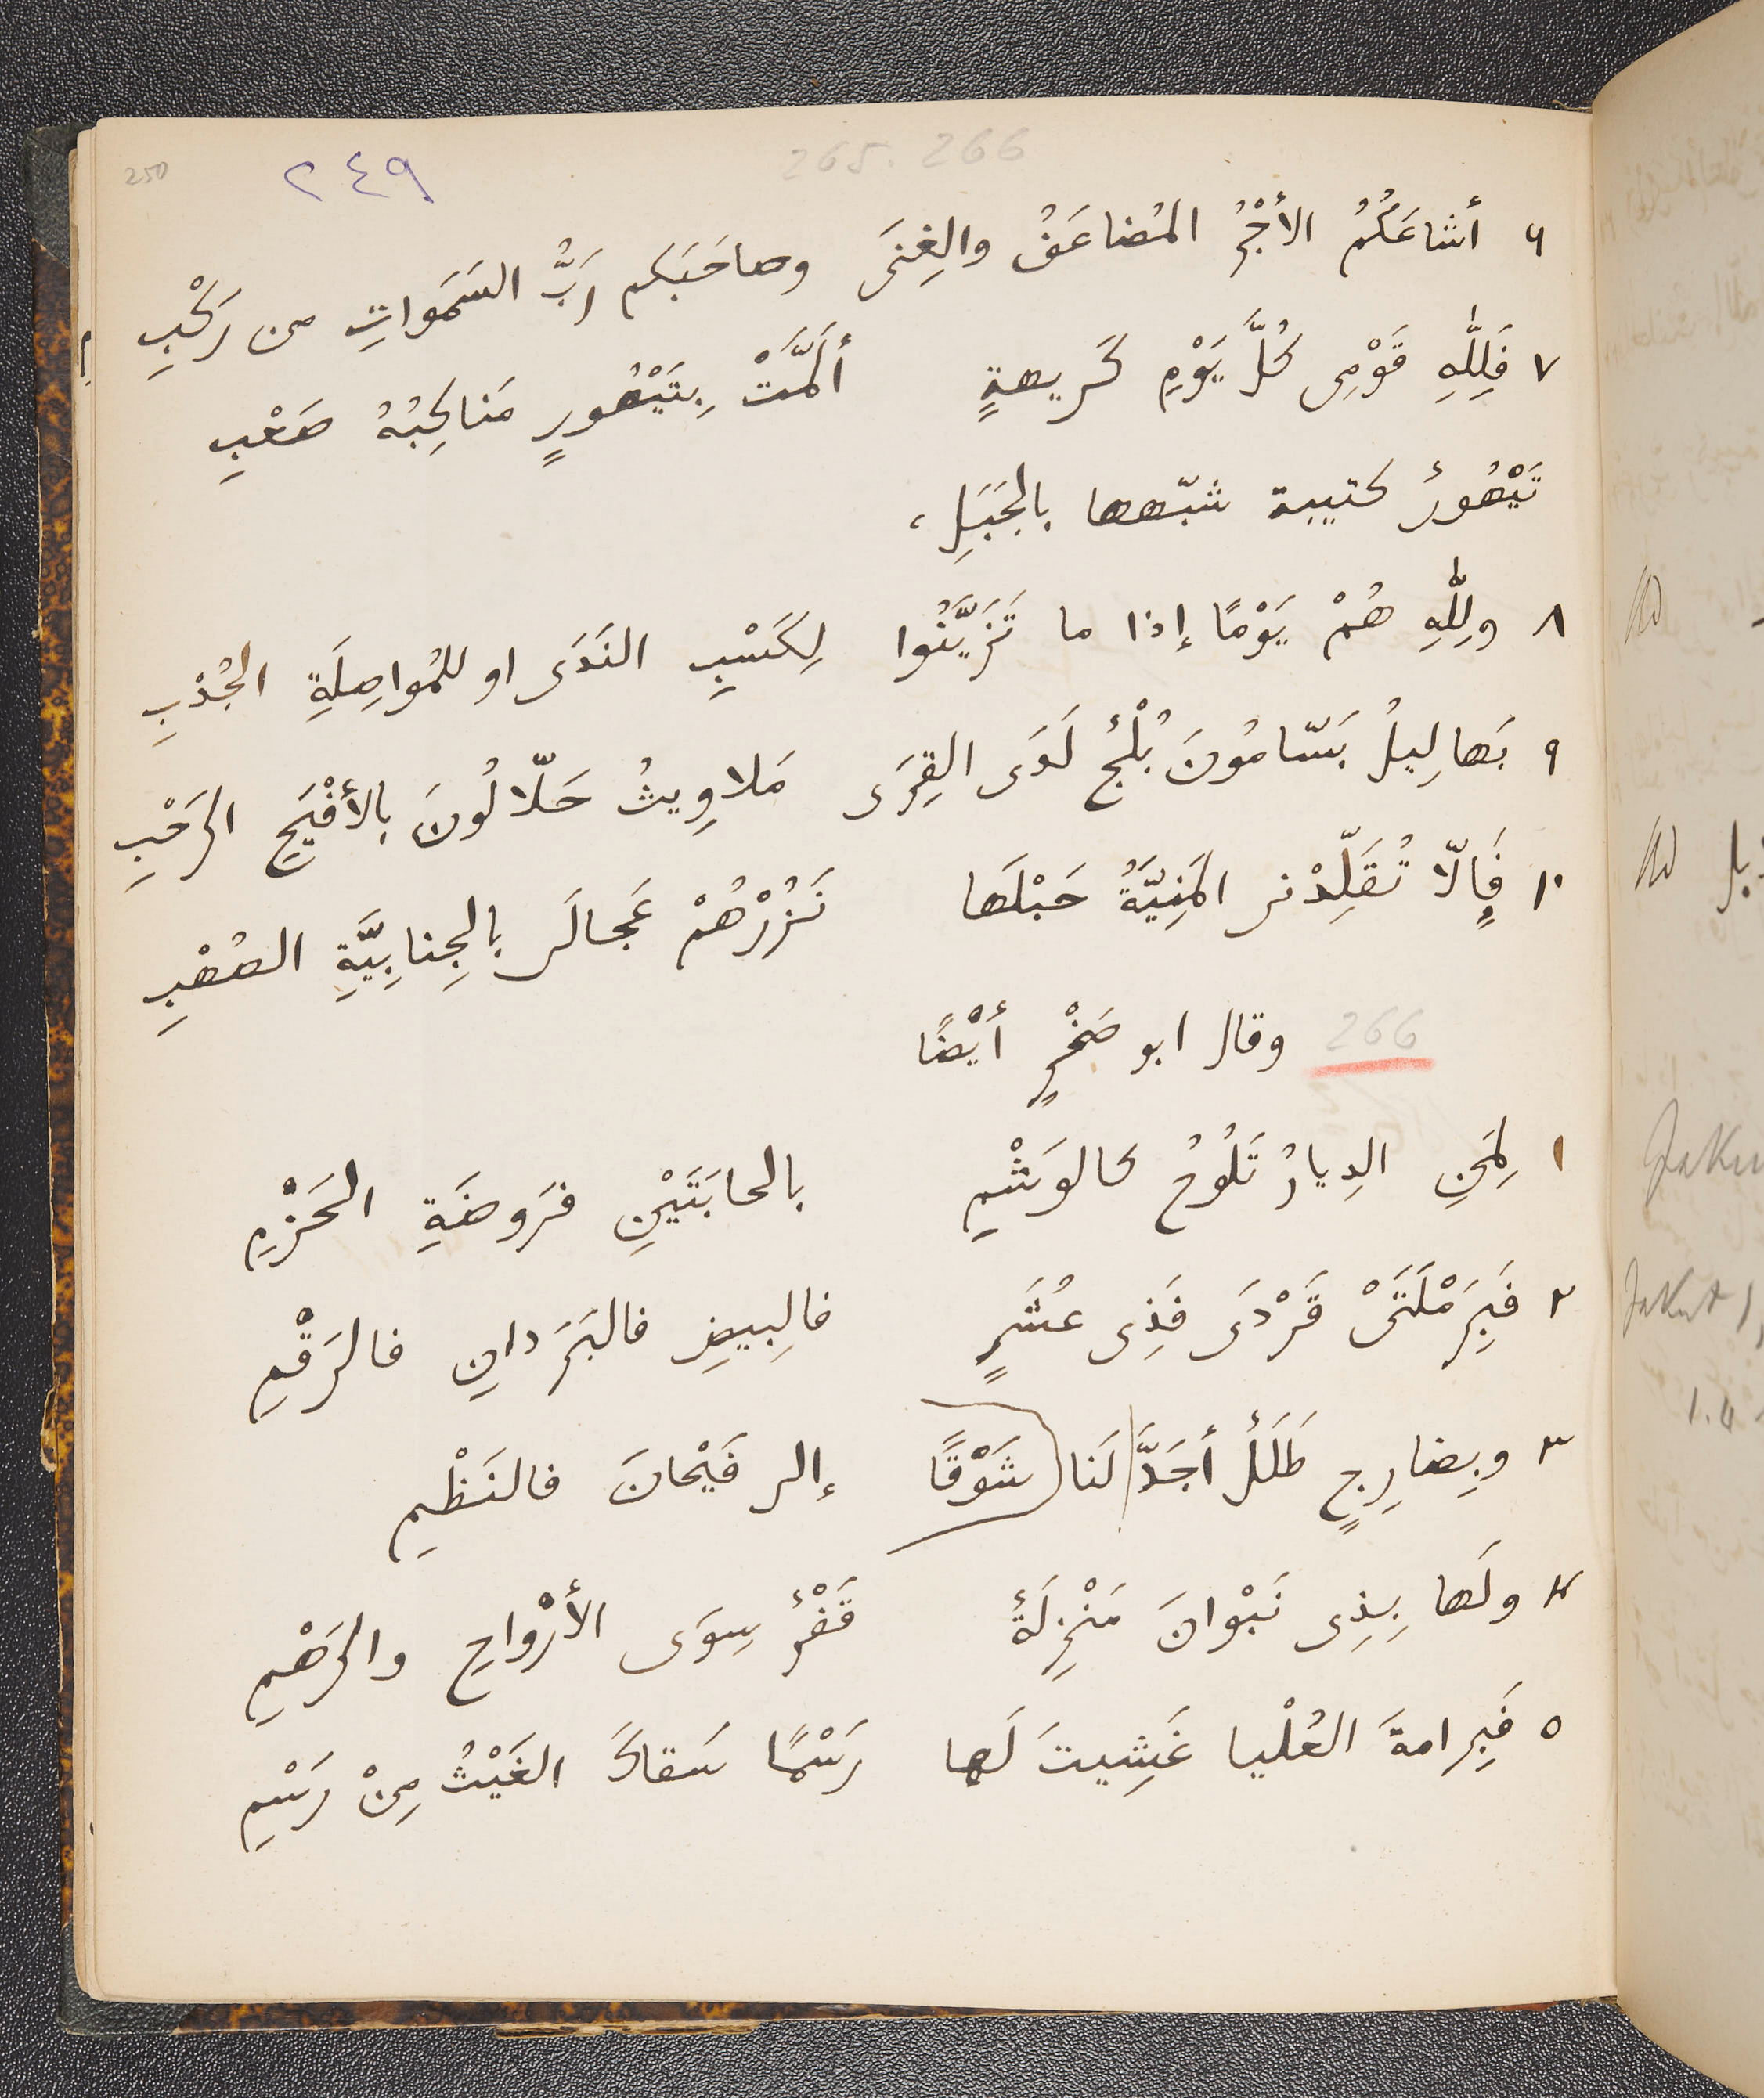 250
٢٤٩
265. 266
٦ أشاعَكُمُ الأجْرُ المُضاعَفُ والغِنَى وصاحَبَكم رَبُّ السَمَواتِ من رَكْبِ
٧ فَلِلّٰهِ قَوْمِى كُلَّ يَوْمِ كَرِيهةٍ أَلَمَّتْ بِتَيْهُورٍ مَناكِبُهُ صَعْبِ
تَيْهُورٌ كتيبة شبّهها بالجَبَلِ،
٨ ولِلّٰهِ هُمْ يَوْمًا إذا ما تَزَيَّنُوا لِكَسْبِ النَدَى او للمُواصِلَةِ الجُدْبِ
٩ بَهالِيلُ بَسّامُونَ بُلْجٌ لَدَى القِرَى مَلاوِيثُ حَلّالُونَ بالأفْيَحِ الرَحْبِ
١٠ فَإلّا تُقَلِّدْنى المَنِيَّةُ حَبْلَها نَزُرْهُمْ عَجالَى بالجِنابِيَّةِ الصُهْبِ
266 وقال ابو صَخْرٍ أيْضًا
١ لِمَنِ الدِيارُ تَلُوحُ كالوَشْمِ بالحابَتَيْنِ فرَوضَةِ الحَزْمِ
٢ فَبِرَمْلَتَىْ قَرْدَى فَذِى عُشَرٍ فالبِيضِ فالبَرَدانِ فالرَقْمِ
٣ وبِضارِجٍ طَلَلٌ أجَدَّ لَنا شَوْقًا إلى فَيْحانَ فالنَظْمِ
٤ ولَها بِذِى نَبْوانَ مَنْزِلَةٌ قَفْرٌ سِوَى الأرْواحِ والرَهْمِ
٥ فَبِرامةَ العُلْيا غَشِيتَ لَها رَسْمًا سَقاكَ الغَيْثُ مِنْ رَسْمِ
Jakut